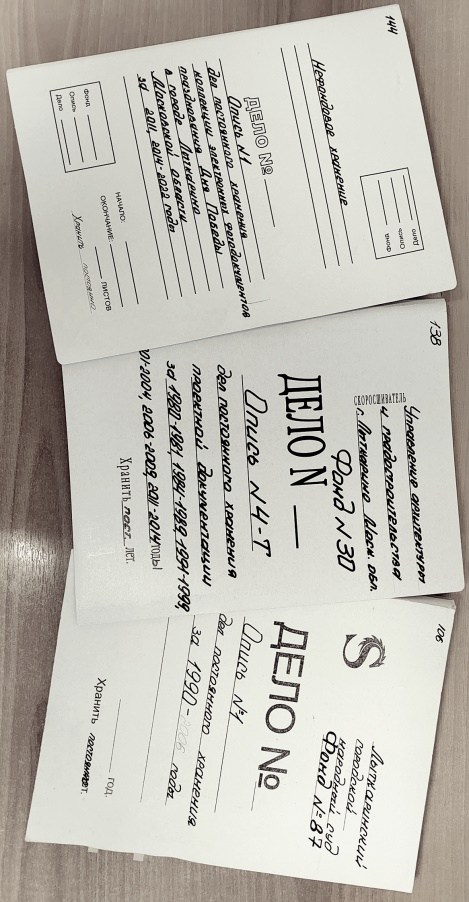 144
Фонд
Опись
Дело
Нефондовое хранение
ДЕЛО №
Опись №1
дел постоянного хранения
коллекции электронных фотодокументов
празднования Дня Победы
в городе Лыткарино
Московской области
за 2011, 2014-2022 годы
НАЧАЛО:
ОКОНЧАНИЕ:
ЛИСТОВ
Хранить постоянно
Фонд
Опись
Дело
138
Управление архитектуры
и градостроительства
г. Лыткарино Моск обл.
СКОРОСШИВАТЕЛЬ
Фонд N 30
ДЕЛО N
Опись N4-Т
дел постоянного хранения
проектной документации
за 1980-1981, 1984-1989, 1991-1998,
01-2004, 2006-2009, 2011-2014 годы
Хранить пост. лет.
106
S
Лыткаринский
городской
народный суд
Фонд № 87
ДЕЛО №
Опись №1
дел постоянного хранения
за 1990- года
год.
Хранить